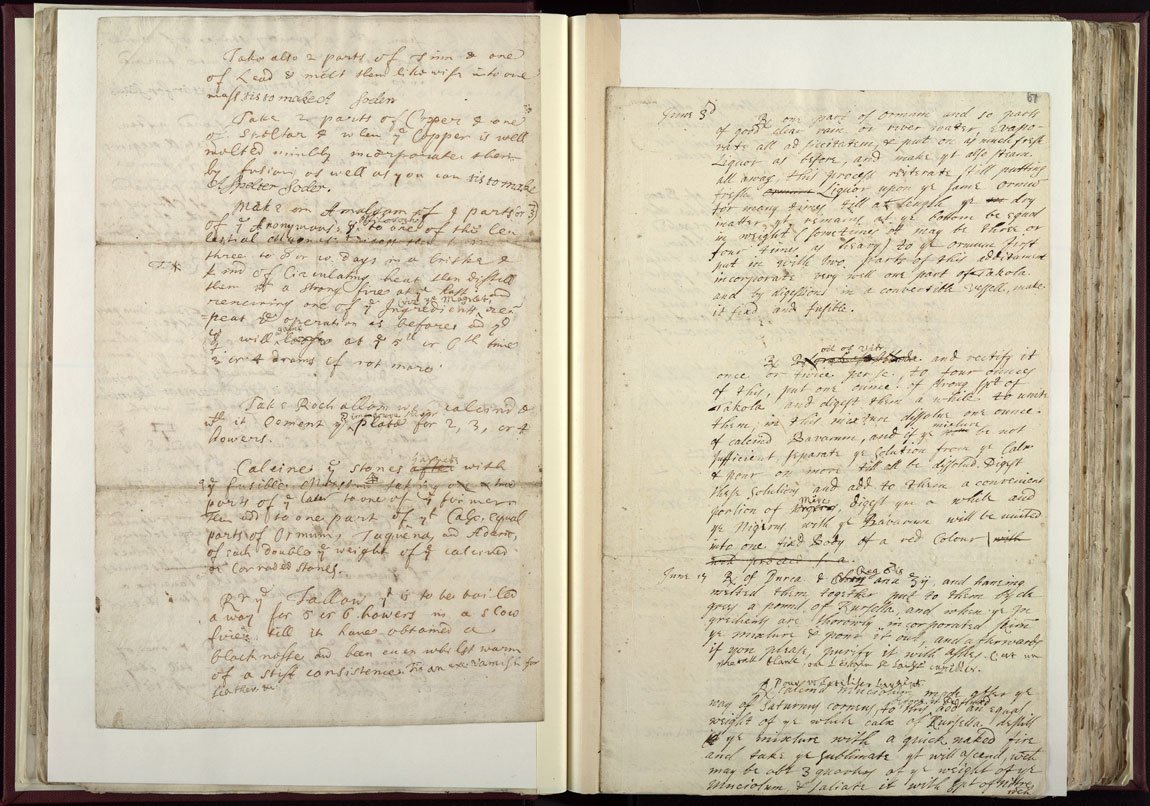 Take also 2 parts of Tinn & one
of Lead & melt them likewise into one
mass tis to make Soder
Take 2 parts of Copper & one
of Speltar & when ye Copper is well
molted nimbly incorporate them
by fusion, as well as you can tis to make
Spelter Soder.
Make an Amalgam of parts
of ye Anonymous, to one of the Cen
three to or 10 days in a briske &
kind of Circulating heat then distill
them wth a strong fire at ye last, and
renewing one of ye Ingredients re
=peat ye operation as before and
will at ye 5th or 6th time
3 or 4 drams if not more.
Take Roch allom calcin'd &
wth it Cement ye plate for 2, 3, or 4
howers.
Calcine ye stones with
ye fusible
parts of ye later to one of ye former
then add to one part of yt Calx, equal
parts of Ormum, Taquena, and Adaris,
of each double ye weight of ye calcin'd
or Corroded stones.
Rx ye Tallow yt is to be boiled
away for 5 or 6 howers in a slow
fire till it have obtained a
blacknesse and been even whilst warm
of a stiff consistence. Tis an exc Varnish for
leather &c
67
June 3d
Rx one part of ormum and 20 parts
of good clear rain or river water, Evapo-
rate all ad siccitatem, & put on as much fresh
Liquor as before, and make yt also steam
all away, this process reiterate still putting
fresh liquor upon ye same ormum
for many times till at length ye dry
matter yt remains at ye bottom be equal
in weight (sometimes it may be three or
four times as heavy) to ye ormum first
put in with two parts of this additament
incorporate very well one part of Takola
and by digestions in a convertible vessell, make
it fixd and fusible.
oil of Vitr.
Rx and rectify it
once or twice per se, to four ounces
of this, put one ounce of strong spt of
Takola and digest them a while to unite
them, in this mixture dissolve one ounce
of calcin'd Bavarum, and if ye mixture be not
sufficient separate ye solution from ye Calx
& pour on more till all be dissolud. Digest
these solutions and add to them a convenient
portion of digest ym a while and
ye Nigerus with ye Bavarum will be united
into one fixd Body of a red Colour with
June 17
Rx of Durca & ana ℥ij. and having
melted them together put to them by de
grees a pound of Bursella, and when ye In
gredients are throwly incorporated skim
ye mixture & pour it out, and afterwards
if you please, purify it with ashes.
Rx Calcind Muciolum made after ye
way of Saturnus corneus, to this add an equal
weight of ye white calx of Bursella, distill
ye mixture with a quick naked fire
and take ye sublimate yt will ascend, wch
may be abt 3 quarters of ye weight of ye
Muciolum, & satiate it with spt of Nitre